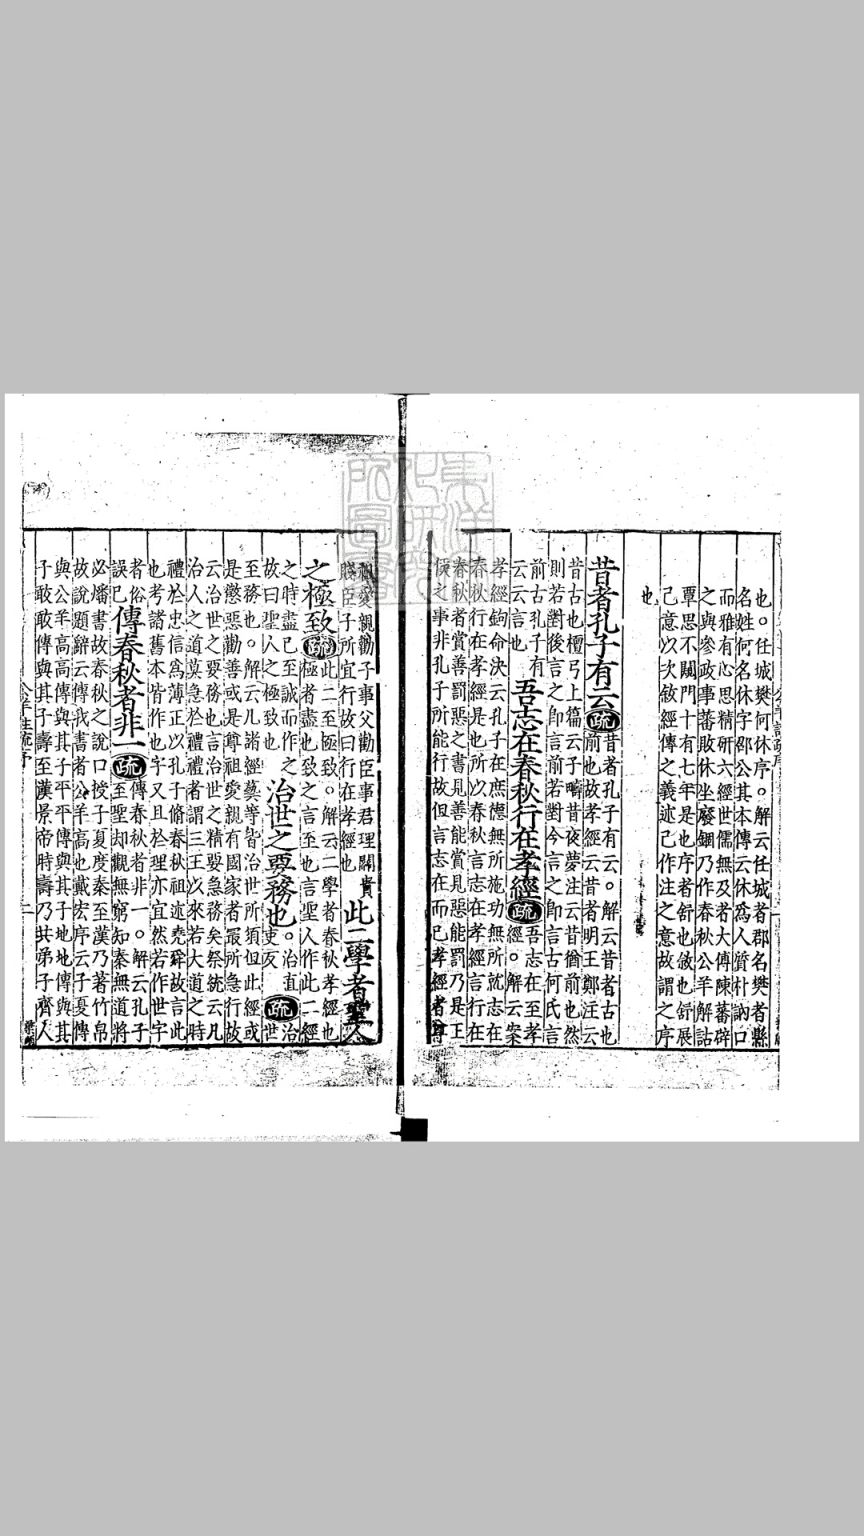 也。任城樊何休序。解云任城者郡名樊者縣
名姓何名休字邵公其本傳云休為人質朴訥口
而雅有心思精研六經世儒無及者大傅陳蕃辟
之與參政事蕃敗休坐廢錮乃作春秋公羊解詁
覃思不闚門十有七年是也序者舒也敘也舒展
己意以次敘經傳之義述己作注之意故謂之序
也
昔者孔子有云 疏 昔者孔子有云。解云昔者古也
前也故孝經云昔者明王鄭注云
昔古也檀弓上篇云子疇昔夜夢注云昔猶前也然
則若對後言之即言前若對今言之即言古何氏言
前古孔子有
云云言也 吾志在春秋行在孝經 疏 吾志在至孝
經。解云案
孝經鉤命決云孔子在庶德無所施功無所就志在
春秋行在孝經是也所以春秋言志在孝經言行在
春秋者賞善罰惡之書見善能賞見惡能罰乃是王
侯之事非孔子所能行故但言志在而已孝經者尊
祖愛親勸子事父勸臣事君理關貴
賤臣子所宜行故曰行在孝經也 此二學者聖人
之極致 疏 此二至極致。解云二學者春秋孝經也
極者盡也致之言至也言聖人作此二經
之時盡己至誠而作之
故曰聖人之極致也 治世之要務也 。治直
吏反 疏 治
世
至務也。解云凡諸經藝等皆治世所須但此經或
是懲惡勸善或是尊祖愛親有國家者最所急行故
云治世之要務也言治世之精要急務矣祭統云凡
治人之道莫急於禮禮者謂三王以來若大道之時
禮於忠信為薄正以孔子脩春秋祖述堯舜故言此
也考諸舊本皆作也字又且於理亦宜然若作世字
者俗
誤已 傳春秋者非一 疏 傳春秋者非一。解云孔子
至聖却觀無窮知秦無道將
必燔書故春秋之說口授子夏度秦至漢乃著竹帛
故說題辭云傳我書者公羊高也戴宏序云子夏傳
與公羊高高傳與其子平平傳與其子地地傳與其
子敢敢傳與其子壽至漢景帝時壽乃共弟子齊人
東洋文化研究所圖書